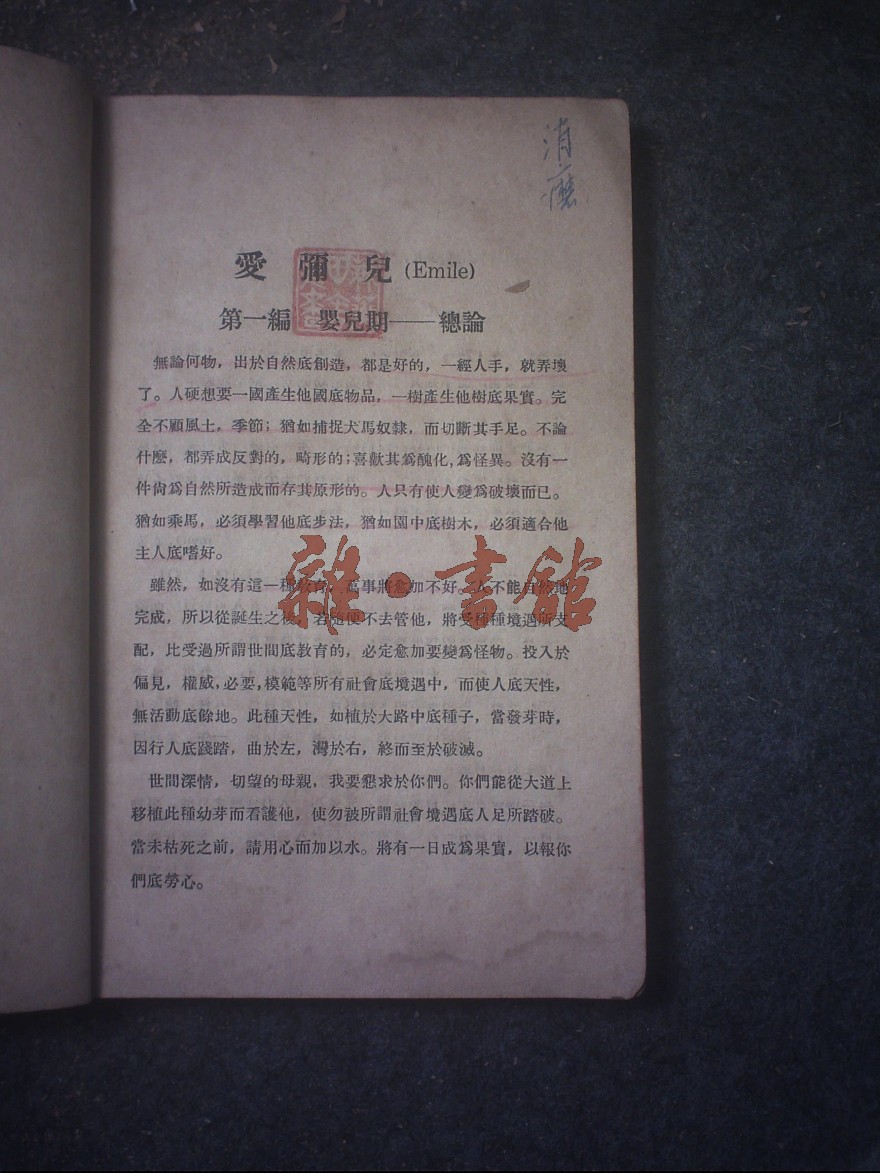 消磨
愛彌兒 (Emile)
第一編 嬰兒期——總論
無論何物，出於自然底創造，都是好的，一經人手，就弄壞
了。人硬想要一國產生他國底物品，一樹產生他樹底果實。完
全不顧風土，季節；猶如捕捉犬馬奴隸，而切斷其手足。不論
什麼，都弄成反對的，畸形的；喜歡其爲醜化，爲怪異。沒有一
件尙爲自然所造成而存其原形的。人只有使人變爲破壞而已。
猶如乘馬，必須學習他底步法，猶如園中底樹木，必須適合他
主人底嗜好。
雖然，如沒有這一種教育，萬事將愈加不好。人不能自然地
完成，所以從誕生之後，若隨便不去管他，將受種種境遇所支
配，比受過所謂世間底教育的，必定愈加要變爲怪物。投入於
偏見，權威，必要，模範等所有社會底境遇中，而使人底天性，
無活動底餘地。此種天性，如植於大路中底種子，當發芽時，
因行人底踐踏，曲於左，灣於右，終而至於破滅。
世間深情，切望的母親，我要懇求於你們。你們能從大道上
移植此種幼芽而看護他，使勿被所謂社會境遇底人足所踏破。
當未枯死之前，請用心而加以水。將有一日成爲果實，以報你
們底勞心。
雜·書館